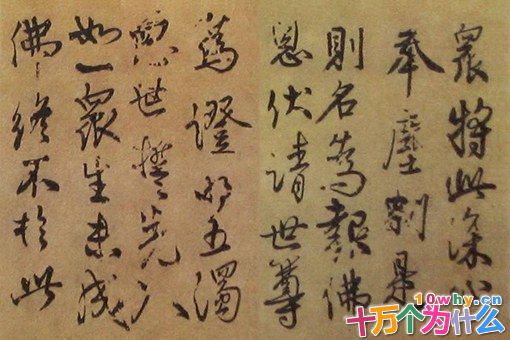 眾將此深心
奉塵剎是
則名為報佛
恩伏請世尊
為證明五濁
惡世誓先入
如一眾生未成
佛終不於此
10why.cn
十万个为什么